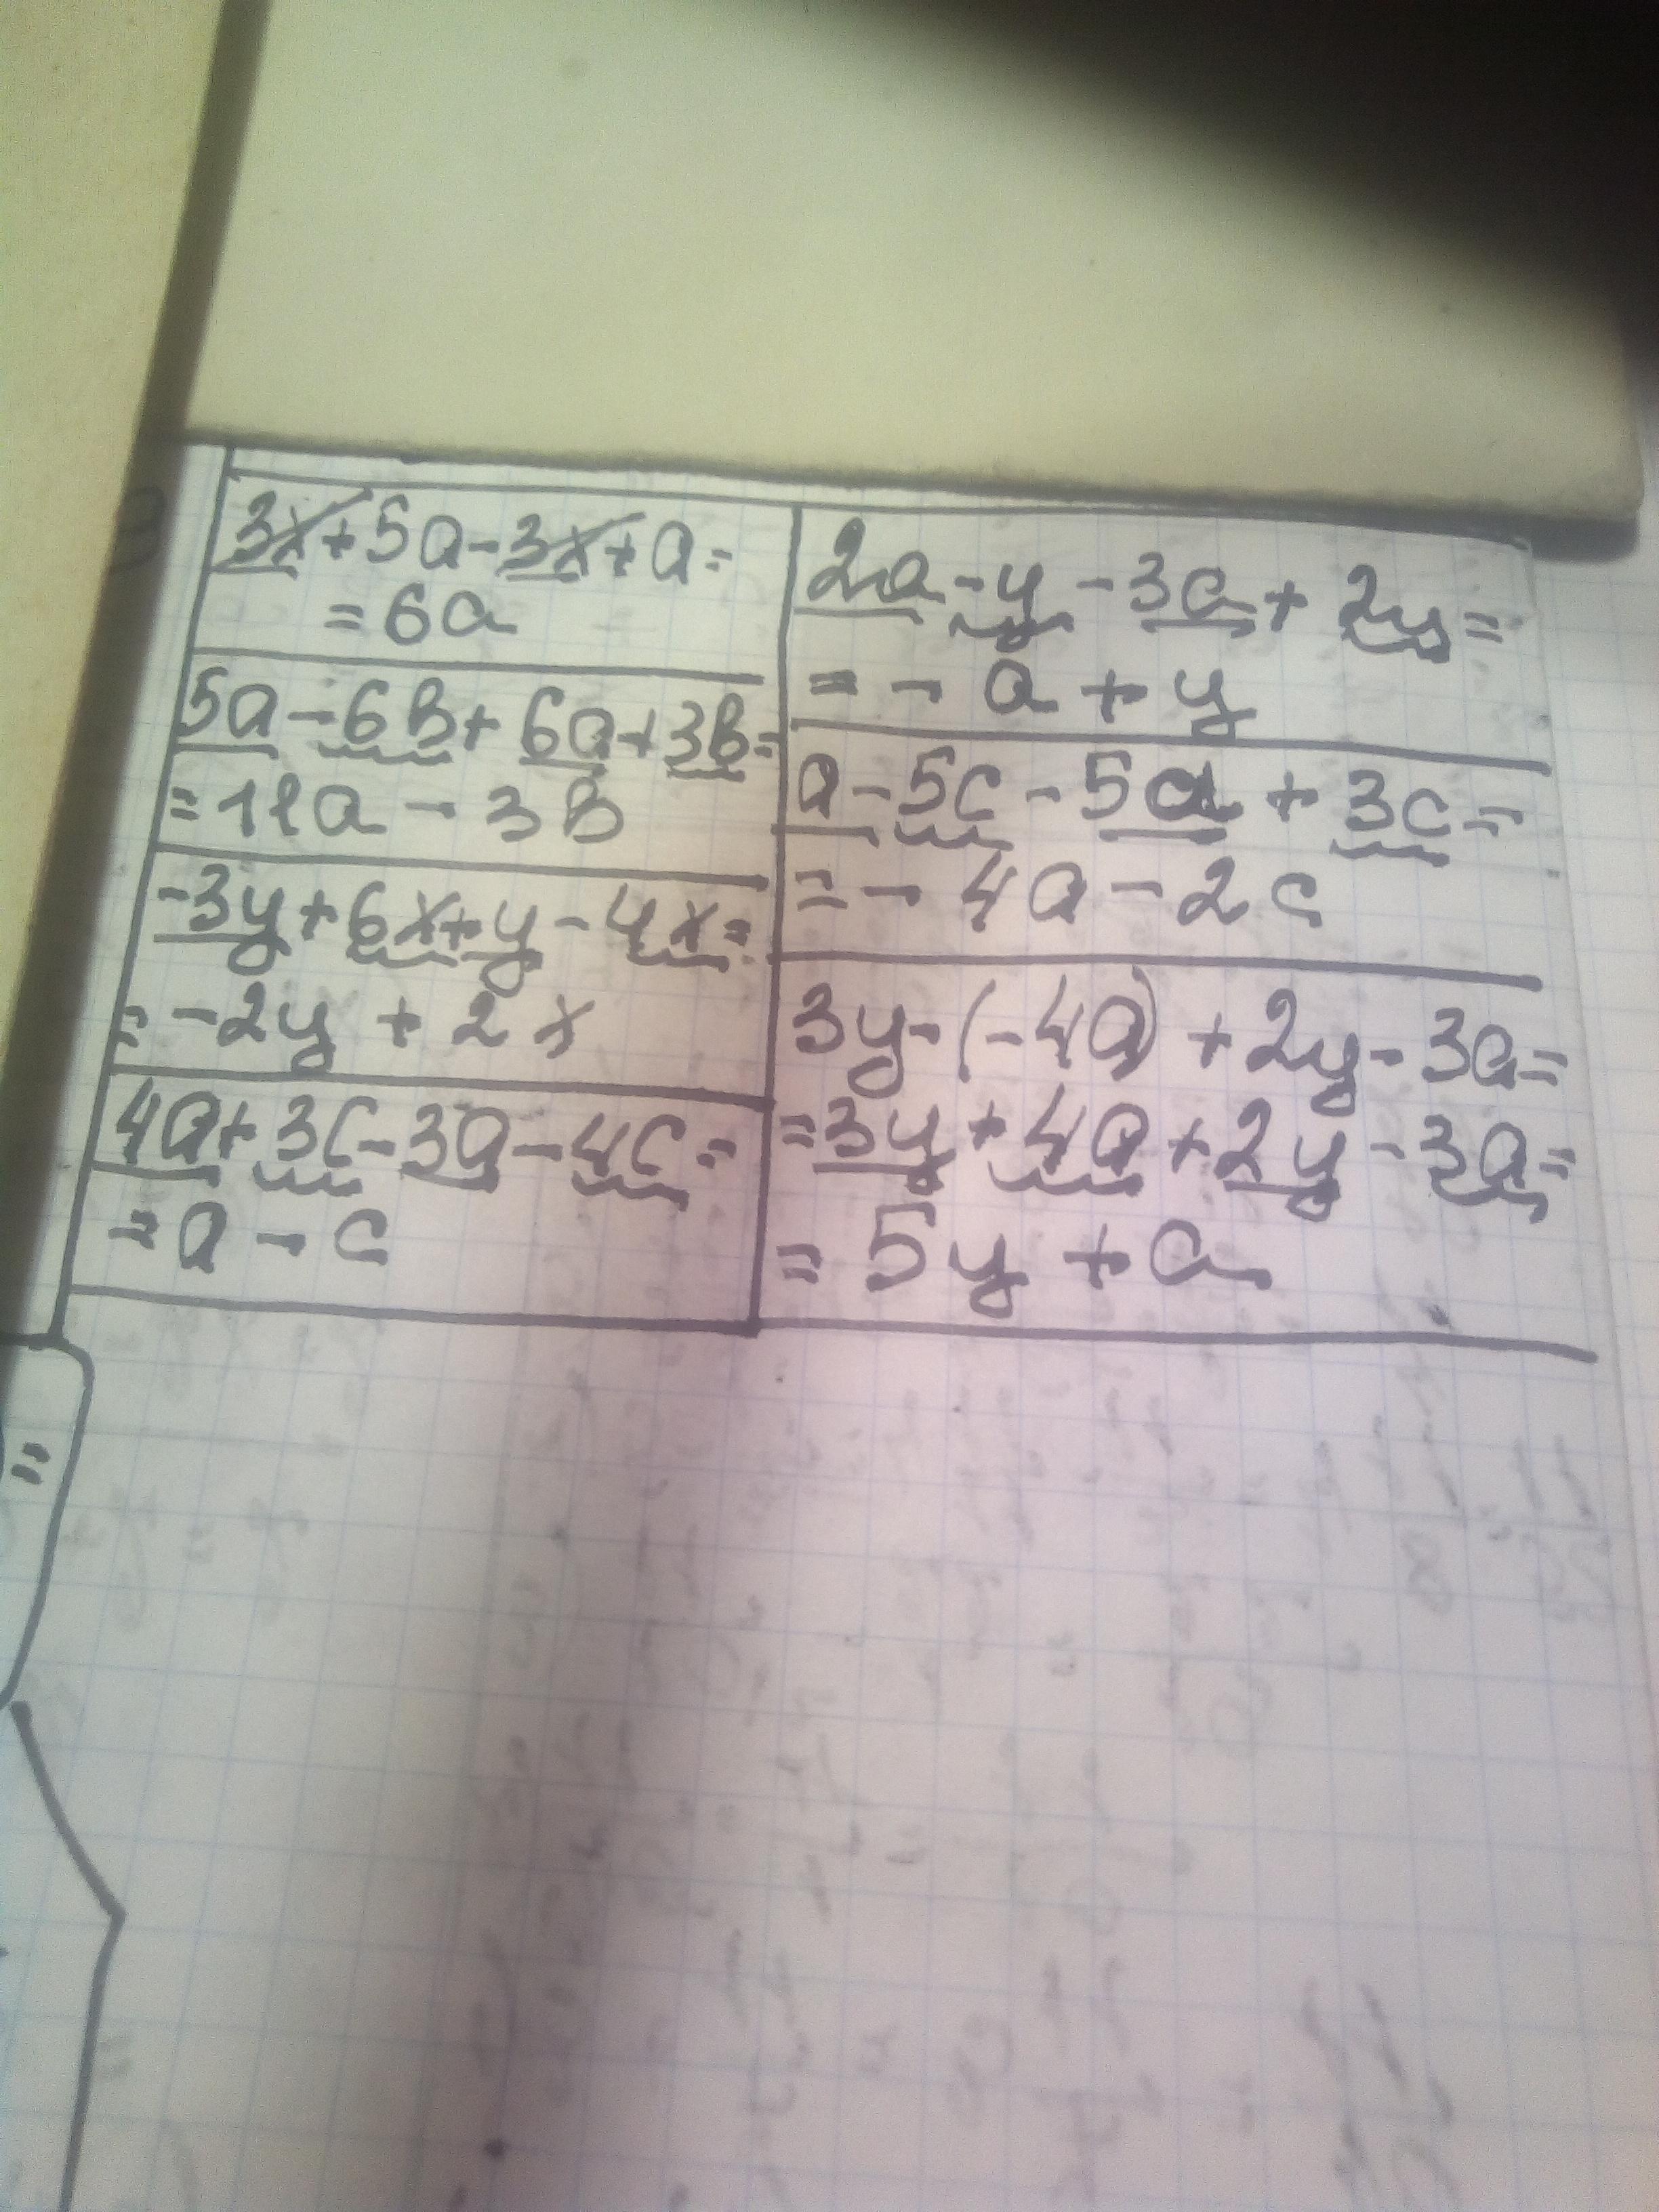 3x+5a-3x+a=
=6a
5a-6b+6a+3b=
=11a-3b
-3y+6x+y-4x=
=-2y+2x
4a+3c-3a-4c=
=a-c
2a-y-3a+2y=
=-a+y
a-5c-5a+3c=
=-4a-2c
3y-(-4a)+2y-3a=
=3y+4a+2y-3a=
=5y+a
=